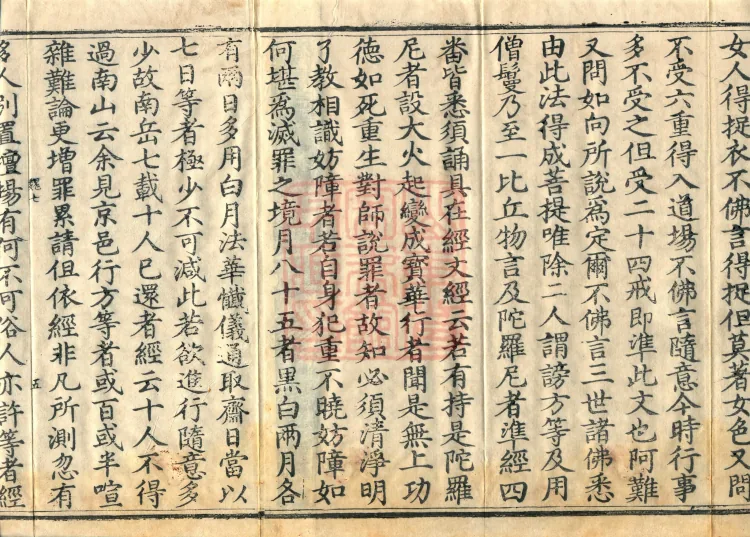 女人得捉衣不佛言得捉但莫著女色又問
不受六重得入道場不佛言隨意今時行事
多不受之但受二十四戒即準此文也阿難
又問如向所說為定爾不佛言三世諸佛悉
由此法得成菩提唯除二人謂謗方等及用
僧鬘乃至一比丘物言及陀羅尼者準經四
番皆悉須誦具在經文經云若有持是陀羅
尼者設大火起變成寶華行者聞是無上功
德如死重生對師說罪者故知必須清淨明
了教相識妨障者若自身犯重不曉妨障如
何堪為滅罪之境月八十五者黑白兩月各
有爾日多用白月法華懺儀通取齋日當以
七日等者極少不可減此若欲進行隨意多
少故南岳七載十人已還者經云十人不得
過南山云余見京邑行方等者或百或半喧
雜難論更增罪累請但依經非凡所測忽有
多人別置壇場有何不可俗人亦許等者經
五